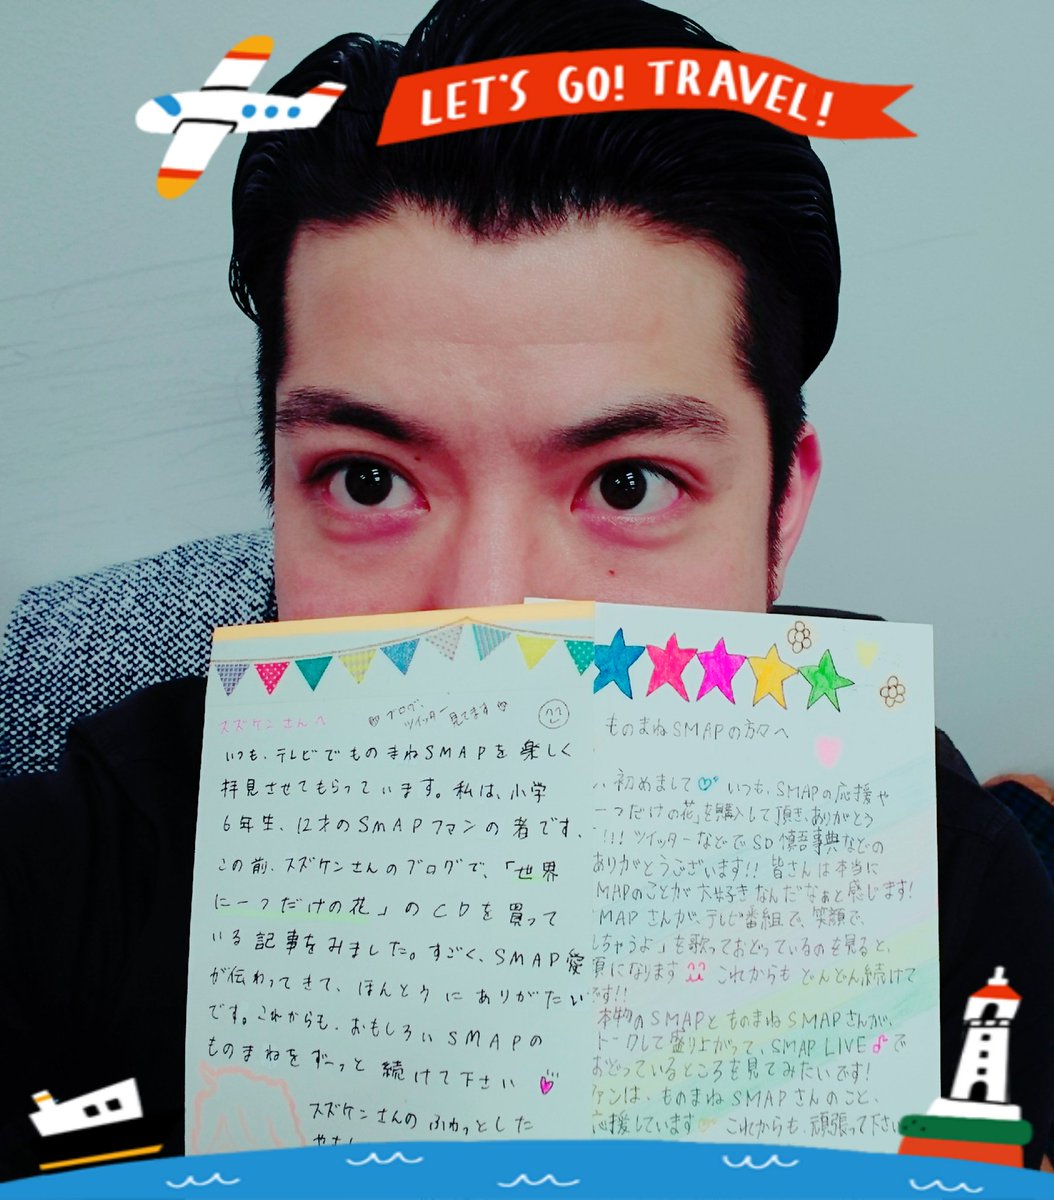 LET'S GO! TRAVEL!
スズケンさんへ
ブログ、
ツイッター見てます
いつも、テレビでものまねSMAPを楽しく
拝見させてもらっています。私は、小学
6年生、12才のSMAPファンの者です、
この前、スズケンさんのブログで、「世界
に一つだけの花」のCDを買って
いる記事をみました。すごく、SMAP愛
が伝わってきて、ほんとうにありがたい
です。これからも、おもしろいSMAPの
ものまねをずーっと続けて下さい
スズケンさんのふわっとした
ものまねSMAPの方々へ
初めまして いつも、SMAPの応援や
一つだけの花」を購入して頂き、ありがとう
!!! ツイッターなどでSD慎吾事典などの
ありがとうございます!! 皆さんは本当に
MAPのことが大好きなんだなぁと感じます!
MAPさんが、テレビ番組で、笑顔で、
しちゃうよ」を歌っておどっているのを見ると、
になります これからもどんどん続けて
です!!
本物のSMAPとものまねSMAPさんが、
トークして盛り上がって、SMAP LIVE♪で
おどっているところを見てみたいです!
ファンは、ものまねSMAPさんのこと、
応援しています これからも、頑張って下さい